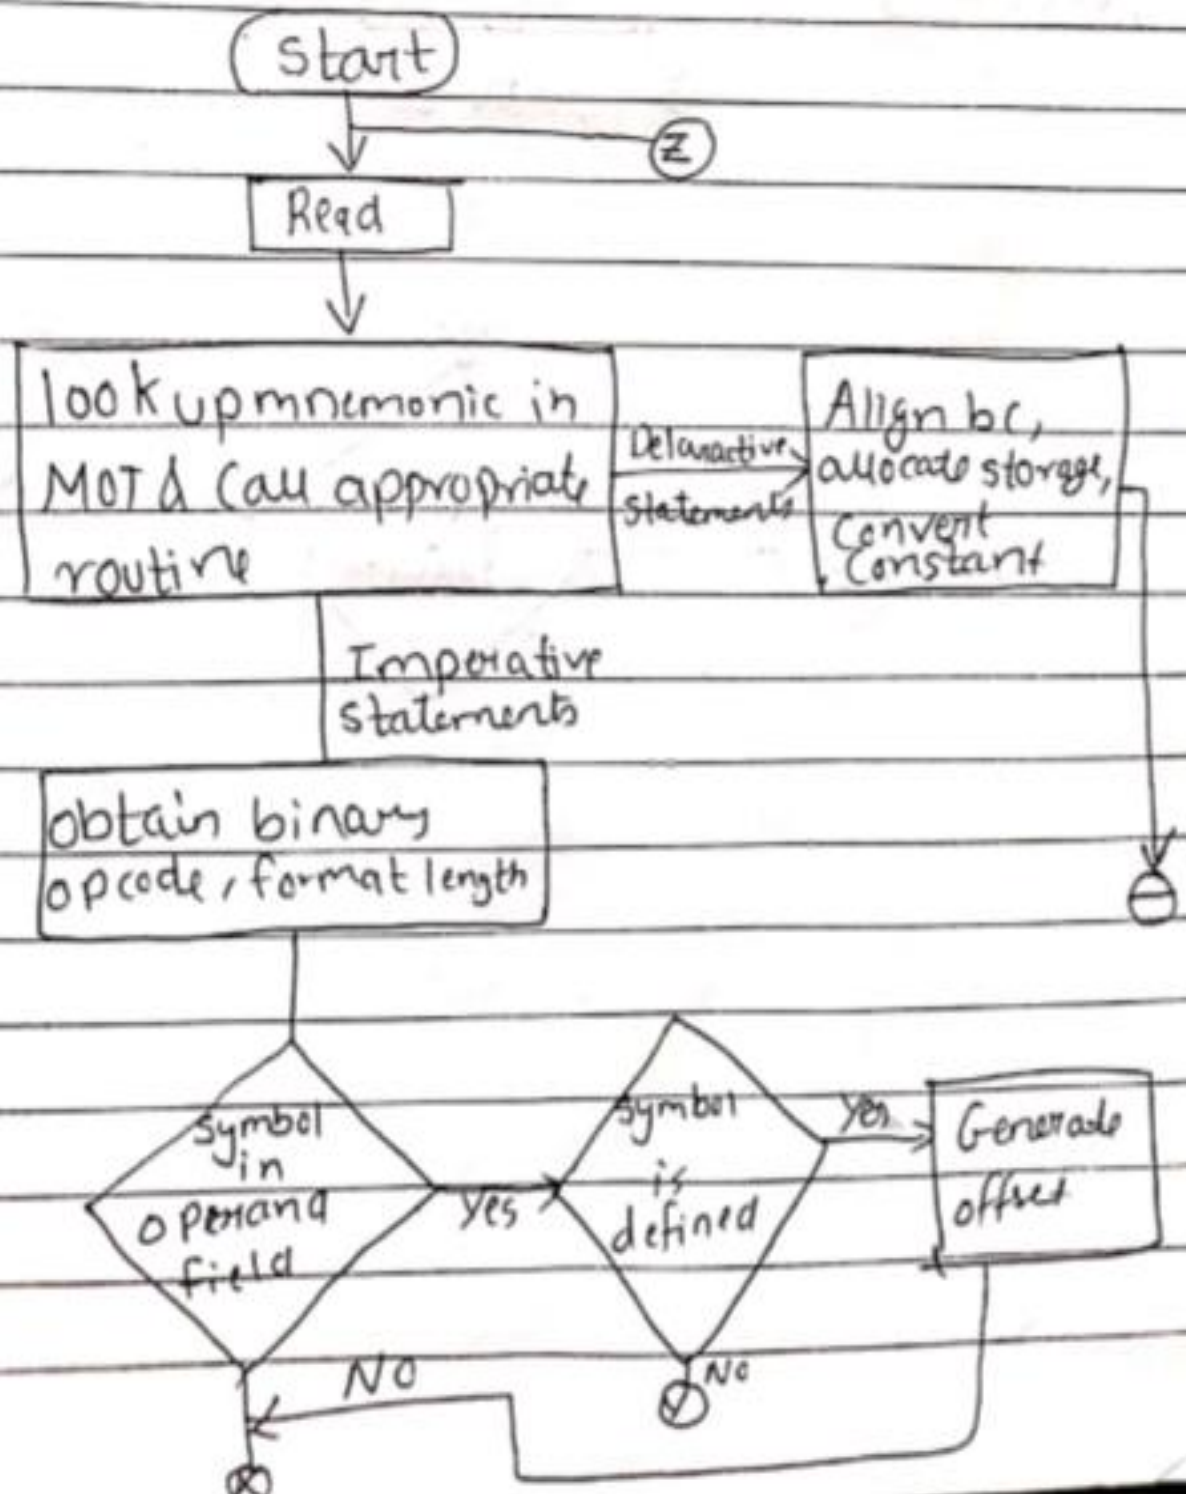 Start
Z
Read
look up mnemonic in
MOT & Call appropriate
routine
Delaractive
statements
Align bc,
allocate storage,
Convert
Constant
Imperative
statements
obtain binary
opcode, format length
symbol
in
operand
field
Yes
symbol
is
defined
Yes
Generate
offset
No
No
Y
X